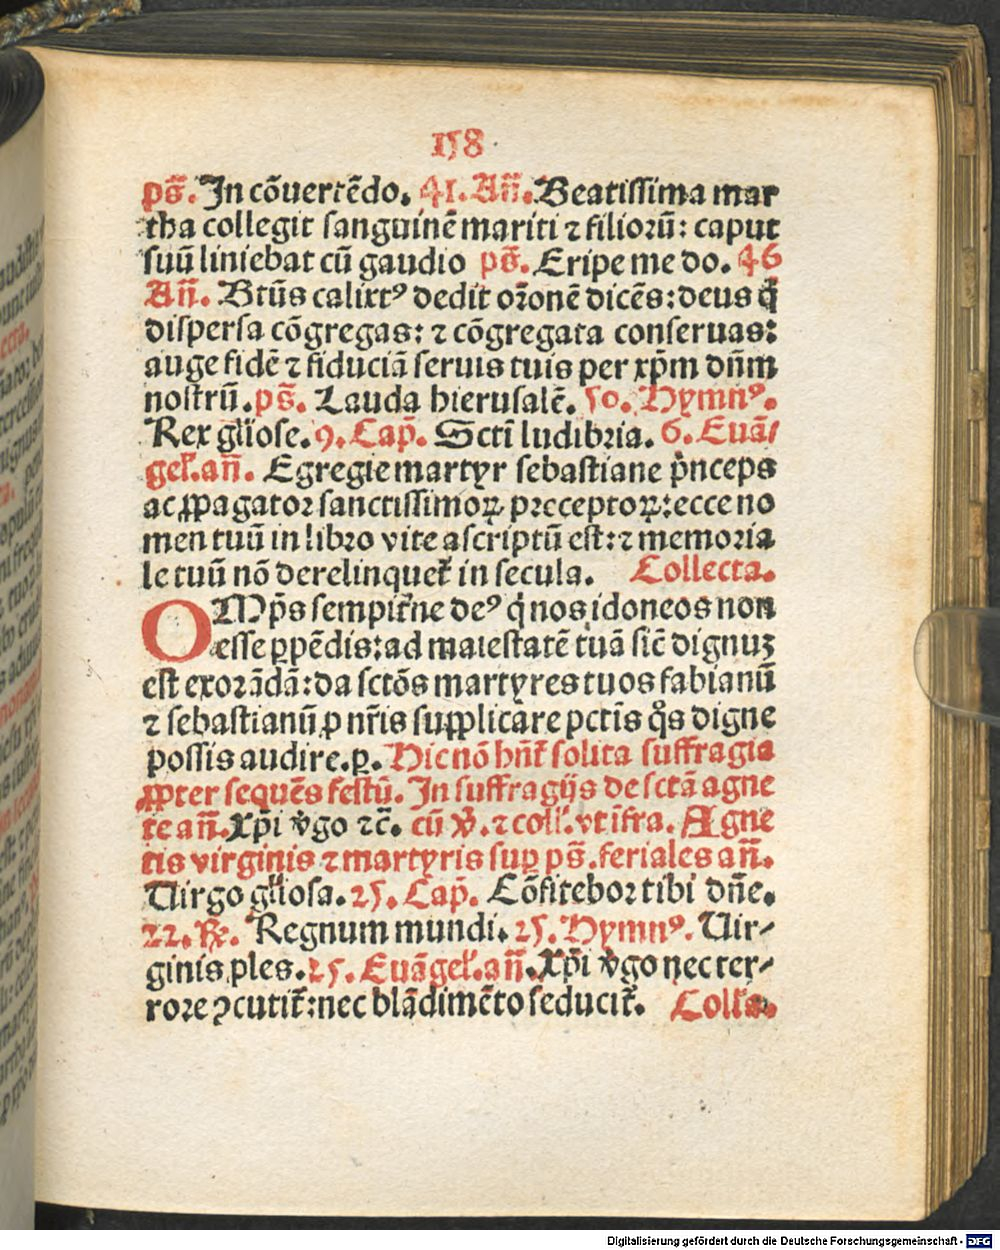 158
ps̃. In cõuertẽdo. 41. Añ. Beatissima mar
tha collegit sanguinẽ mariti ⁊ filioꝛũ: caput
suũ liniebat cũ gaudio ps̃. Eripe me do. 46
Añ. Btũs calixtꝰ dedit oꝛonẽ dicẽs: deus q̃
dispersa cõgregas: ⁊ cõgregata conseruas:
auge fidẽ ⁊ fiduciã seruis tuis per xp̃m dñm
nostrũ. ps̃. Lauda hierusalẽ. 50. Hymnꝰ.
Rex gl̃iose. 9. Cap̃. Sctĩ ludibꝛia. 6. Euã/
gel̃. añ. Egregie martyr sebastiane p̃nceps
ac ꝓpagatoꝛ sanctissimoꝝ preceptoꝝ: ecce no
men tuũ in libꝛo vite ascriptũ est: ⁊ memoꝛia
le tuũ nõ derelinquet̃ in secula. Collecta.
OMp̃s sempit̃ne deꝰ q̃ nos idoneos non
esse ꝑpẽdis: ad maiestatẽ tuã sic̃ dignuꝫ
est exoꝛãdã: da sctõs martyres tuos fabianũ
⁊ sebastianũ ꝓ nr̃is supplicare pctĩs q̃s digne
possis audire. ꝑ. Hic nõ hñt̃ solita suffragia
ꝓpter sequẽs festũ. In suffragijs de sctã agne
te añ. Xp̃i v̓go ⁊c̃. cũ v̓. ⁊ coll̃. vt ĩfra. Agne
tis virginis ⁊ martyris suꝑ ps̃. feriales añ.
Uirgo gl̃iosa. 25. Cap̃. Cõfiteboꝛ tibi dñe.
22. ℟. Regnum mundi. 25. Hymnꝰ. Uir-
ginis ꝓles. 25. Euãgel̃. añ. Xp̃i v̓go nec ter-
roꝛe ꝯcutit̃: nec blãdimẽto seducit̃. Coll̃a.
Digitalisierung gefördert durch die Deutsche Forschungsgemeinschaft - DFG